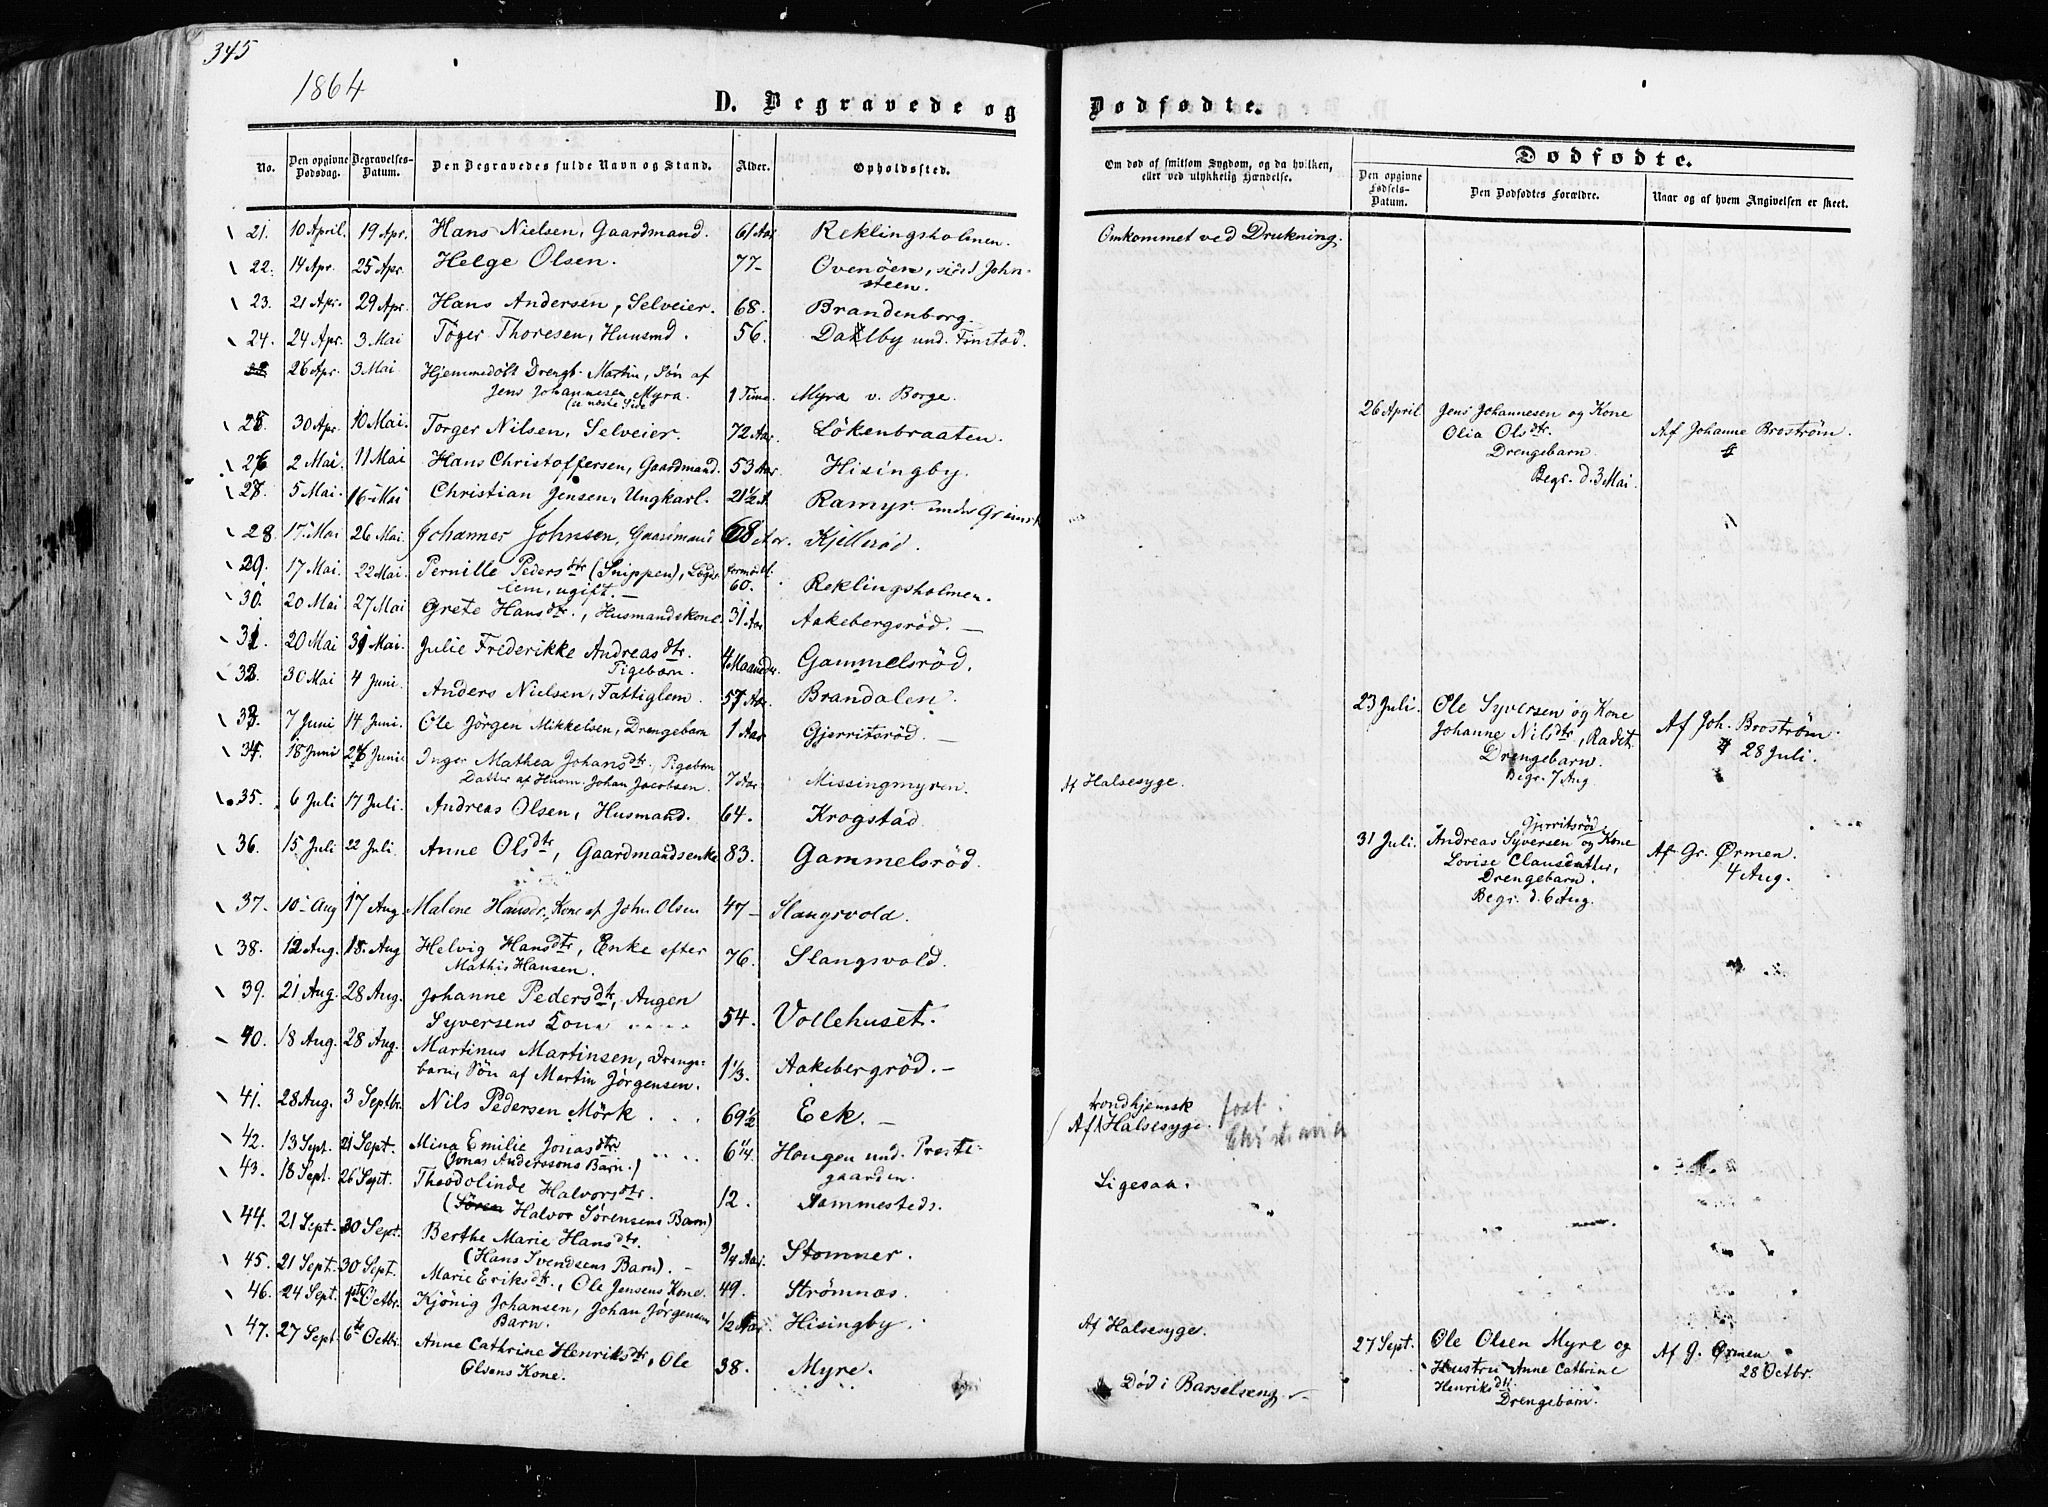 345
1864
D. Begravede og Dødfødte.
No. Den opgivne Dødsdag. Begravelses-Datum. Den Begravedes fulde Navn og Stand. Alder. Opholdssted. Om død af smitsom Sygdom, og da hvilken, eller ved ulykkelig Hændelse. Dødfødte. Den opgivne Fødsels-Datum. Den Dødfødtes Forældre. Naar og af hvem Angivelsen er skeet.
21. 10 April. 19 Apr. Hans Nielsen, Gaardmand. 61 Aar Reklingsholmen. Omkommet ved Drukning.
22. 14 Apr. 25 Apr. Helge Olsen. 77 - Ovenöen, sidst John-
steen.
23. 21 Apr. 29 Apr. Hans Andersen, Selveier. 68. Brandenborg.
24. 24 Apr. 3 Mai Töger Thoresen, Huusmd. 56. Dahlby und. Finstad.
26 Apr. 3 Mai Hjemmedöbt Drengb. Martin, Sön af
Jens Johannesen Myra. 1 Time. Myra v. Borge.
26 April Jens Johannesen og Kone
Olia Olsdtr. Af Johanne Broström.
Drengebarn.
Begr. d. 3 Mai.
25. 30 Apr. 10 Mai. Torger Nilsen, Selveier. 72 Aar. Lökenbraaten.
26 2 Mai 11 Mai Hans Christoffersen, Gaardmand. 53 Aar. Hisingby.
27. 5 Mai. 16 Mai Christian Jensen, Ungkarl. 21 1/2 A. Ramyr under
28. 17 Mai 26 Mai. Johannes Johnsen, Gaardmand 68 Aar. Kjelleröd.
29. 17 Mai. 22 Mai. Pernille Pedersdtr (Snippen), Logs-
lem, ugift. — 60. Reklingsholmen.
30. 20 Mai 27 Mai Grete Hansdtr., Husmandskone. 31 Aar Aakebergsröd. —
31. 20 Mai 31 Mai. Julie Frederikke Andreasdtr.
Pigebarn. 4 Maander. Gammelsröd.
32. 30 Mai 4 Juni. Anders Nielsen, Fattiglem. 57 Aar. Brandalen.
33. 7 Juni 14 Juni. Ole Jörgen Mikkelsen, Drengebarn 1 Aar Gjerritsröd. —
23 Juli. Ole Syversen og Kone
Johanne Nilsdtr, Radit. Af Joh. Broström.
28 Juli.
Drengebarn.
Begr. 7 Aug.
34. 18 Juni 26 Juni Inger Mathea Johansdtr, Pigebarn
Datter af Husm. Johan Jacobsen. 7 Aar. Missingmyren. Af Halsesyge.
35. 6 Juli 17 Juli. Andreas Olsen, Husmand. 64. Krogstad
36. 15 Juli 22 Juli. Anne Olsdtr, Gaardmandsenke 83. Gammelsröd.
Gjerritsröd
31 Juli. Andreas Syversen og Kone
Lovise Clausdatter, Af Gr. Ørmen.
4 Aug.
Drengebarn.
Begr. d. 6 Aug.
37. 10 Aug 17 Aug. Malene Hansdr, Kone af John Olsen 47 - Slangsvold.
38. 12 Aug. 18. Aug Helvig Hansdtr, Enke efter
Mathis Hansen. 76. Slangsvold.
39. 21 Aug. 28 Aug. Johanne Pedersdtr, Augen
Syversens Kone 54. Vollehuset.
40. 18 Aug. 28 Aug. Martinus Martinsen, Drenge-
barn, Sön af Martin Jörgensen. 1 1/3. Aakebergröd. —
41. 28 Aug. 3 Septbr. Nils Pedersen Mörk 69 1/2 Eek. —
trondhjemsk
42. 13 Sept. 21 Sept. Mina Emilie Jonasdtr.
(Jonas Anderssons Barn.) 6 1/4. Haugen und. Præste-
gaarden. Af Halsesyge. Christiania
43. 18 Sept. 26 Sept. Theodolinde Halvorsdtr.
(Sören Halvor Sörensens Barn) 12. Hammersteds. Ligesaa.
44. 21 Sept. 30 Sept. Berthe Marie Hansdtr.
(Hans Svendsens Barn). 3/4 Aar. Stomner.
45. 21 Sept. 30 Sept. Marie Eriksdtr., Ole Jensens Kone. 49. Strömnæs.
46. 24 Sept. 1ste Octbr. Kjönig Johansen, Johan Jörgensens
Barn. 1/2 Aar. Hisingby. Af Halsesyge.
47. 27 Sept. 6te Octbr. Anne Cathrine Henriksdtr, Ole
Olsens Kone. 38. Myre. Död i Barselseng.
27 Sept. Ole Olsen Myre og
Hustru Anne Cathrine
Henriksdtr
Drengebarn. Af G. Ørmen
28 Octbr.